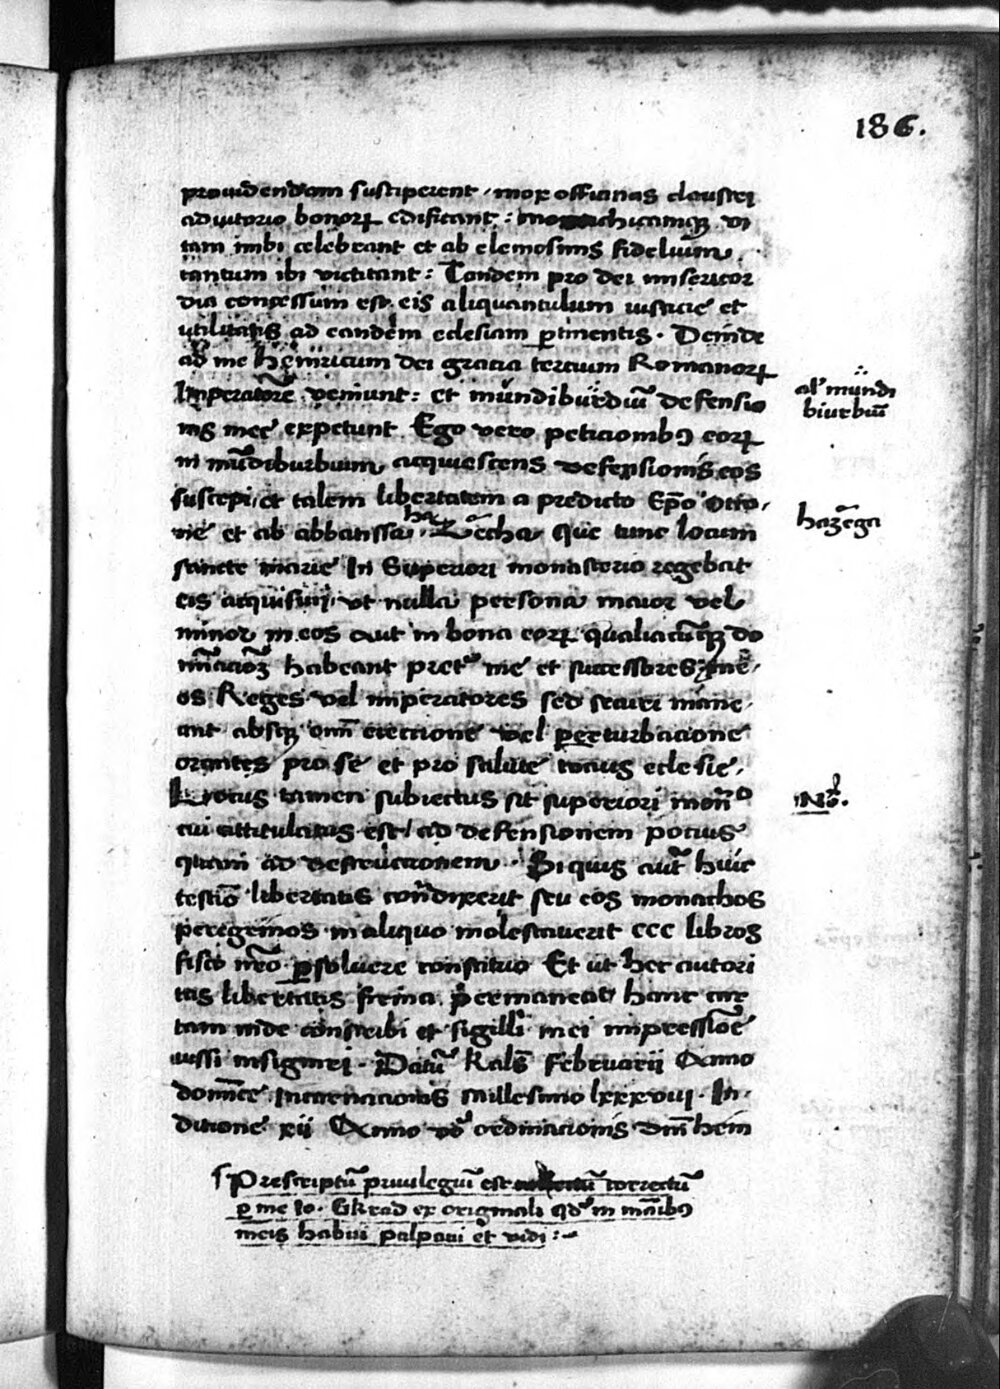 186.
prouidendam susciperent, mox officinas claustri
adiutorio bonorꝝ edificant: monachicamqꝫ vi
tam inibi celebrant et ab elemosinis fideliūm
tantum ibi victitant: Tandem pro dei misericor
dia concessum est eis aliquantulum iusticie et
vtilitatis ad eandem eclesiam ꝑtinentis. Deinde
ad me Heinricum dei gracia tercium Romanorꝝ
Imperatorē veniunt: et mundiburdiū defensio
nis mee expetunt Ego vero peticionibꝰ eorꝝ
in mūdiburbium acquiescens defensionis eos
suscepi, et talem libertatem a predicto Epō Otto,
ne et ab abbatissa ha que tunc locum
sancte marie In Superiori monasterio regebat
eis acquisiui, vt nulla persona maior vel
minor in eos aut in bona eorꝝ qualiacūqꝫ do
minacioꝫ habeant pret' me et successores me,
os Reges vel imperatores sed securi mane,
ant absqꝫ omī ereccione vel perturbacione
orantes pro se et pro salute tocius eclesie,
Locus tamen subiectus sit superiori mon̄o
cui attitulatus est, ad defensionem pocius
quam ad destruccionem. Si quis aut̄ huic
testiō libertatis con̄dixerit seu eos monachos
peregrinos in aliquo molestauerit ccc libros
fisco nr̄o ꝑsoluere constituo Et ut hec autori
tas libertatis firma permaneat, hanc car
tam inde conscribi et sigilli mei impressiōe
iussi insigniri. Datū kals̄ Februarii Anno
domīce Incarnacionis Millesimo lxxxviiij. In,
dictione xii Anno vo ordinacionis dn̄i hein
Prescriptū priuilegiū est correctū
ꝑ me Io. Gkrad ex originali qd' in manibꝰ
meis habui palpaui et vidi:-
al' mundi
biurbiū
hazēga
No.